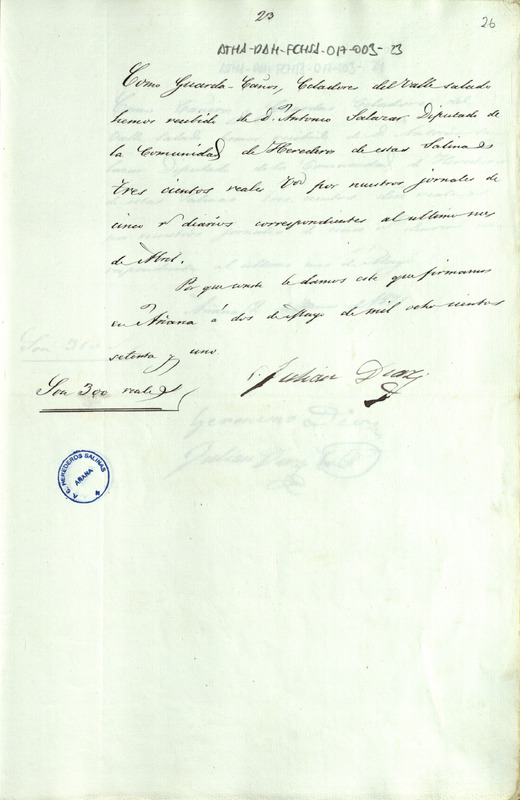 23
26
ATHA-DAH-FCHSA-017-003-23
Como Guarda-Caños, Celadores del Valle salado
hemos recibido de D.n Antonio Salazar Diputado de
la Comunidad de Herederos de estas Salinas
tres cientos reales por nuestros jornales de
cinco r.s diarios correspondientes al ultimo mes
de Abril.
Por que conste le damos este que firmamos
en Añana á dos de Mayo de mil ocho cientos
setenta y uno.
Julian Diaz
Son 300 reales
A. C. HEREDEROS SALINAS
AÑANA
Geronimo Diaz
Julian Diaz